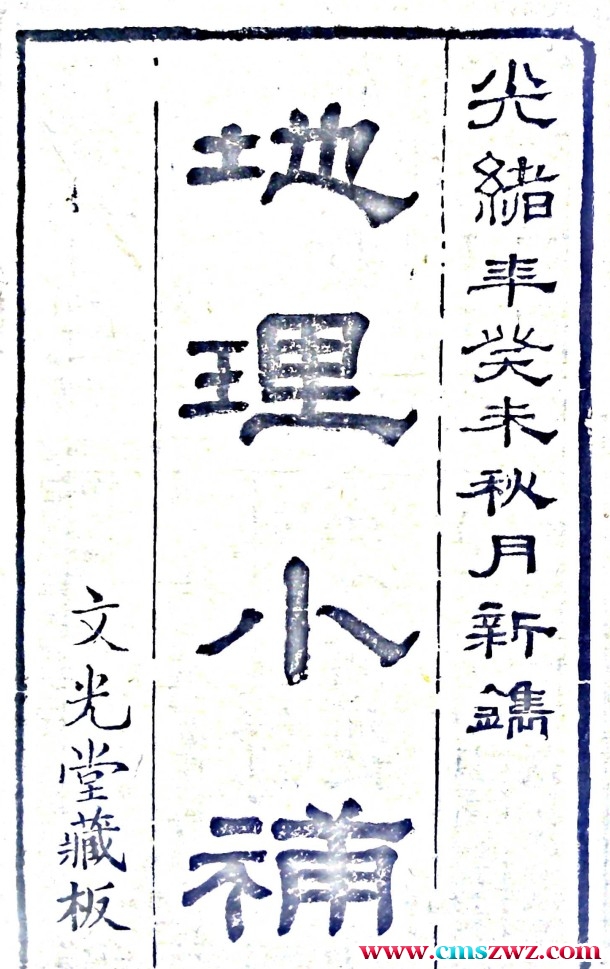 光緒年癸未秋月新鐫
地理小補
文光堂藏板
www.cmszwz.com